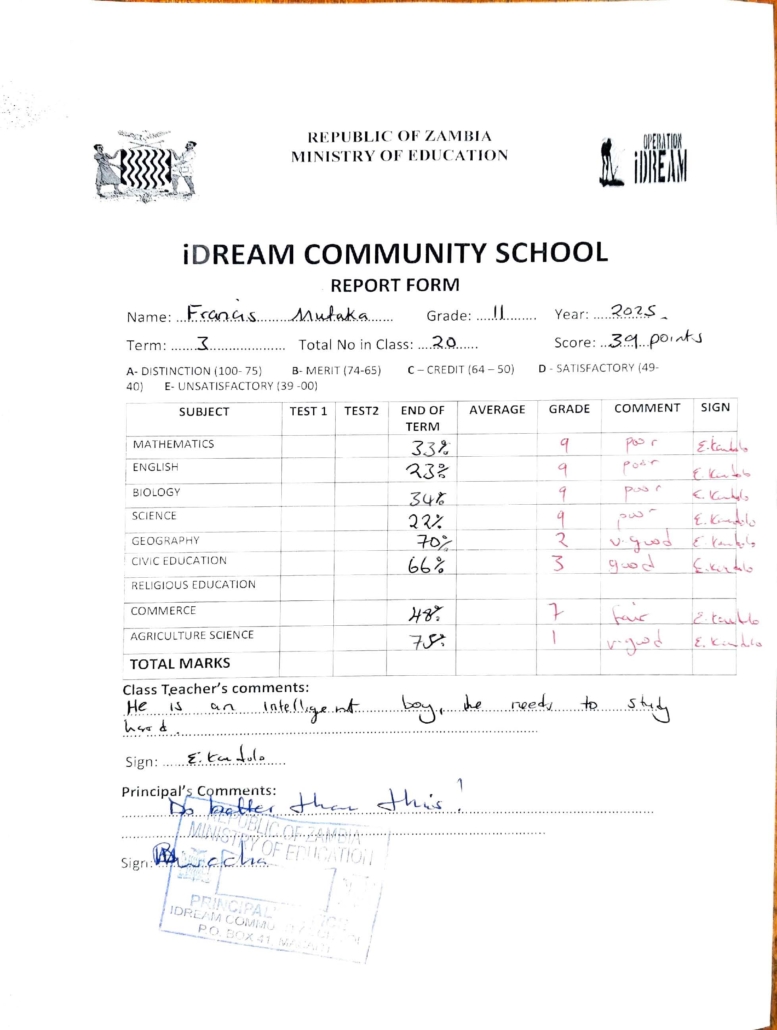 REPUBLIC OF ZAMBIA
MINISTRY OF EDUCATION
OPERATION
iDREAM
iDREAM COMMUNITY SCHOOL
REPORT FORM
Name: Francis Mutaka Grade: 11 Year: 2025
Term: 3 Total No in Class: 20 Score: 39 points
A- DISTINCTION (100- 75) B- MERIT (74-65) C – CREDIT (64 – 50) D - SATISFACTORY (49-
40) E- UNSATISFACTORY (39 -00)
SUBJECT TEST 1 TEST2 END OF TERM AVERAGE GRADE COMMENT SIGN
MATHEMATICS 33% 9 poor E. Kandolo
ENGLISH 23% 9 poor E. Kandolo
BIOLOGY 34% 9 poor E. Kandolo
SCIENCE 22% 9 poor E. Kandolo
GEOGRAPHY 70% 2 v. good E. Kandolo
CIVIC EDUCATION 66% 3 good E. Kandolo
RELIGIOUS EDUCATION
COMMERCE 48% 7 fair E. Kandolo
AGRICULTURE SCIENCE 75% 1 v-good E. Kandolo
TOTAL MARKS
Class Teacher's comments:
He is an intelligent boy, he needs to study
hard.
Sign: E. Kandolo
Principal's Comments:
Do better than this!
REPUBLIC OF ZAMBIA
MINISTRY OF EDUCATION
Sign:
PRINCIPAL
IDREAM
P.O. BOX 41,